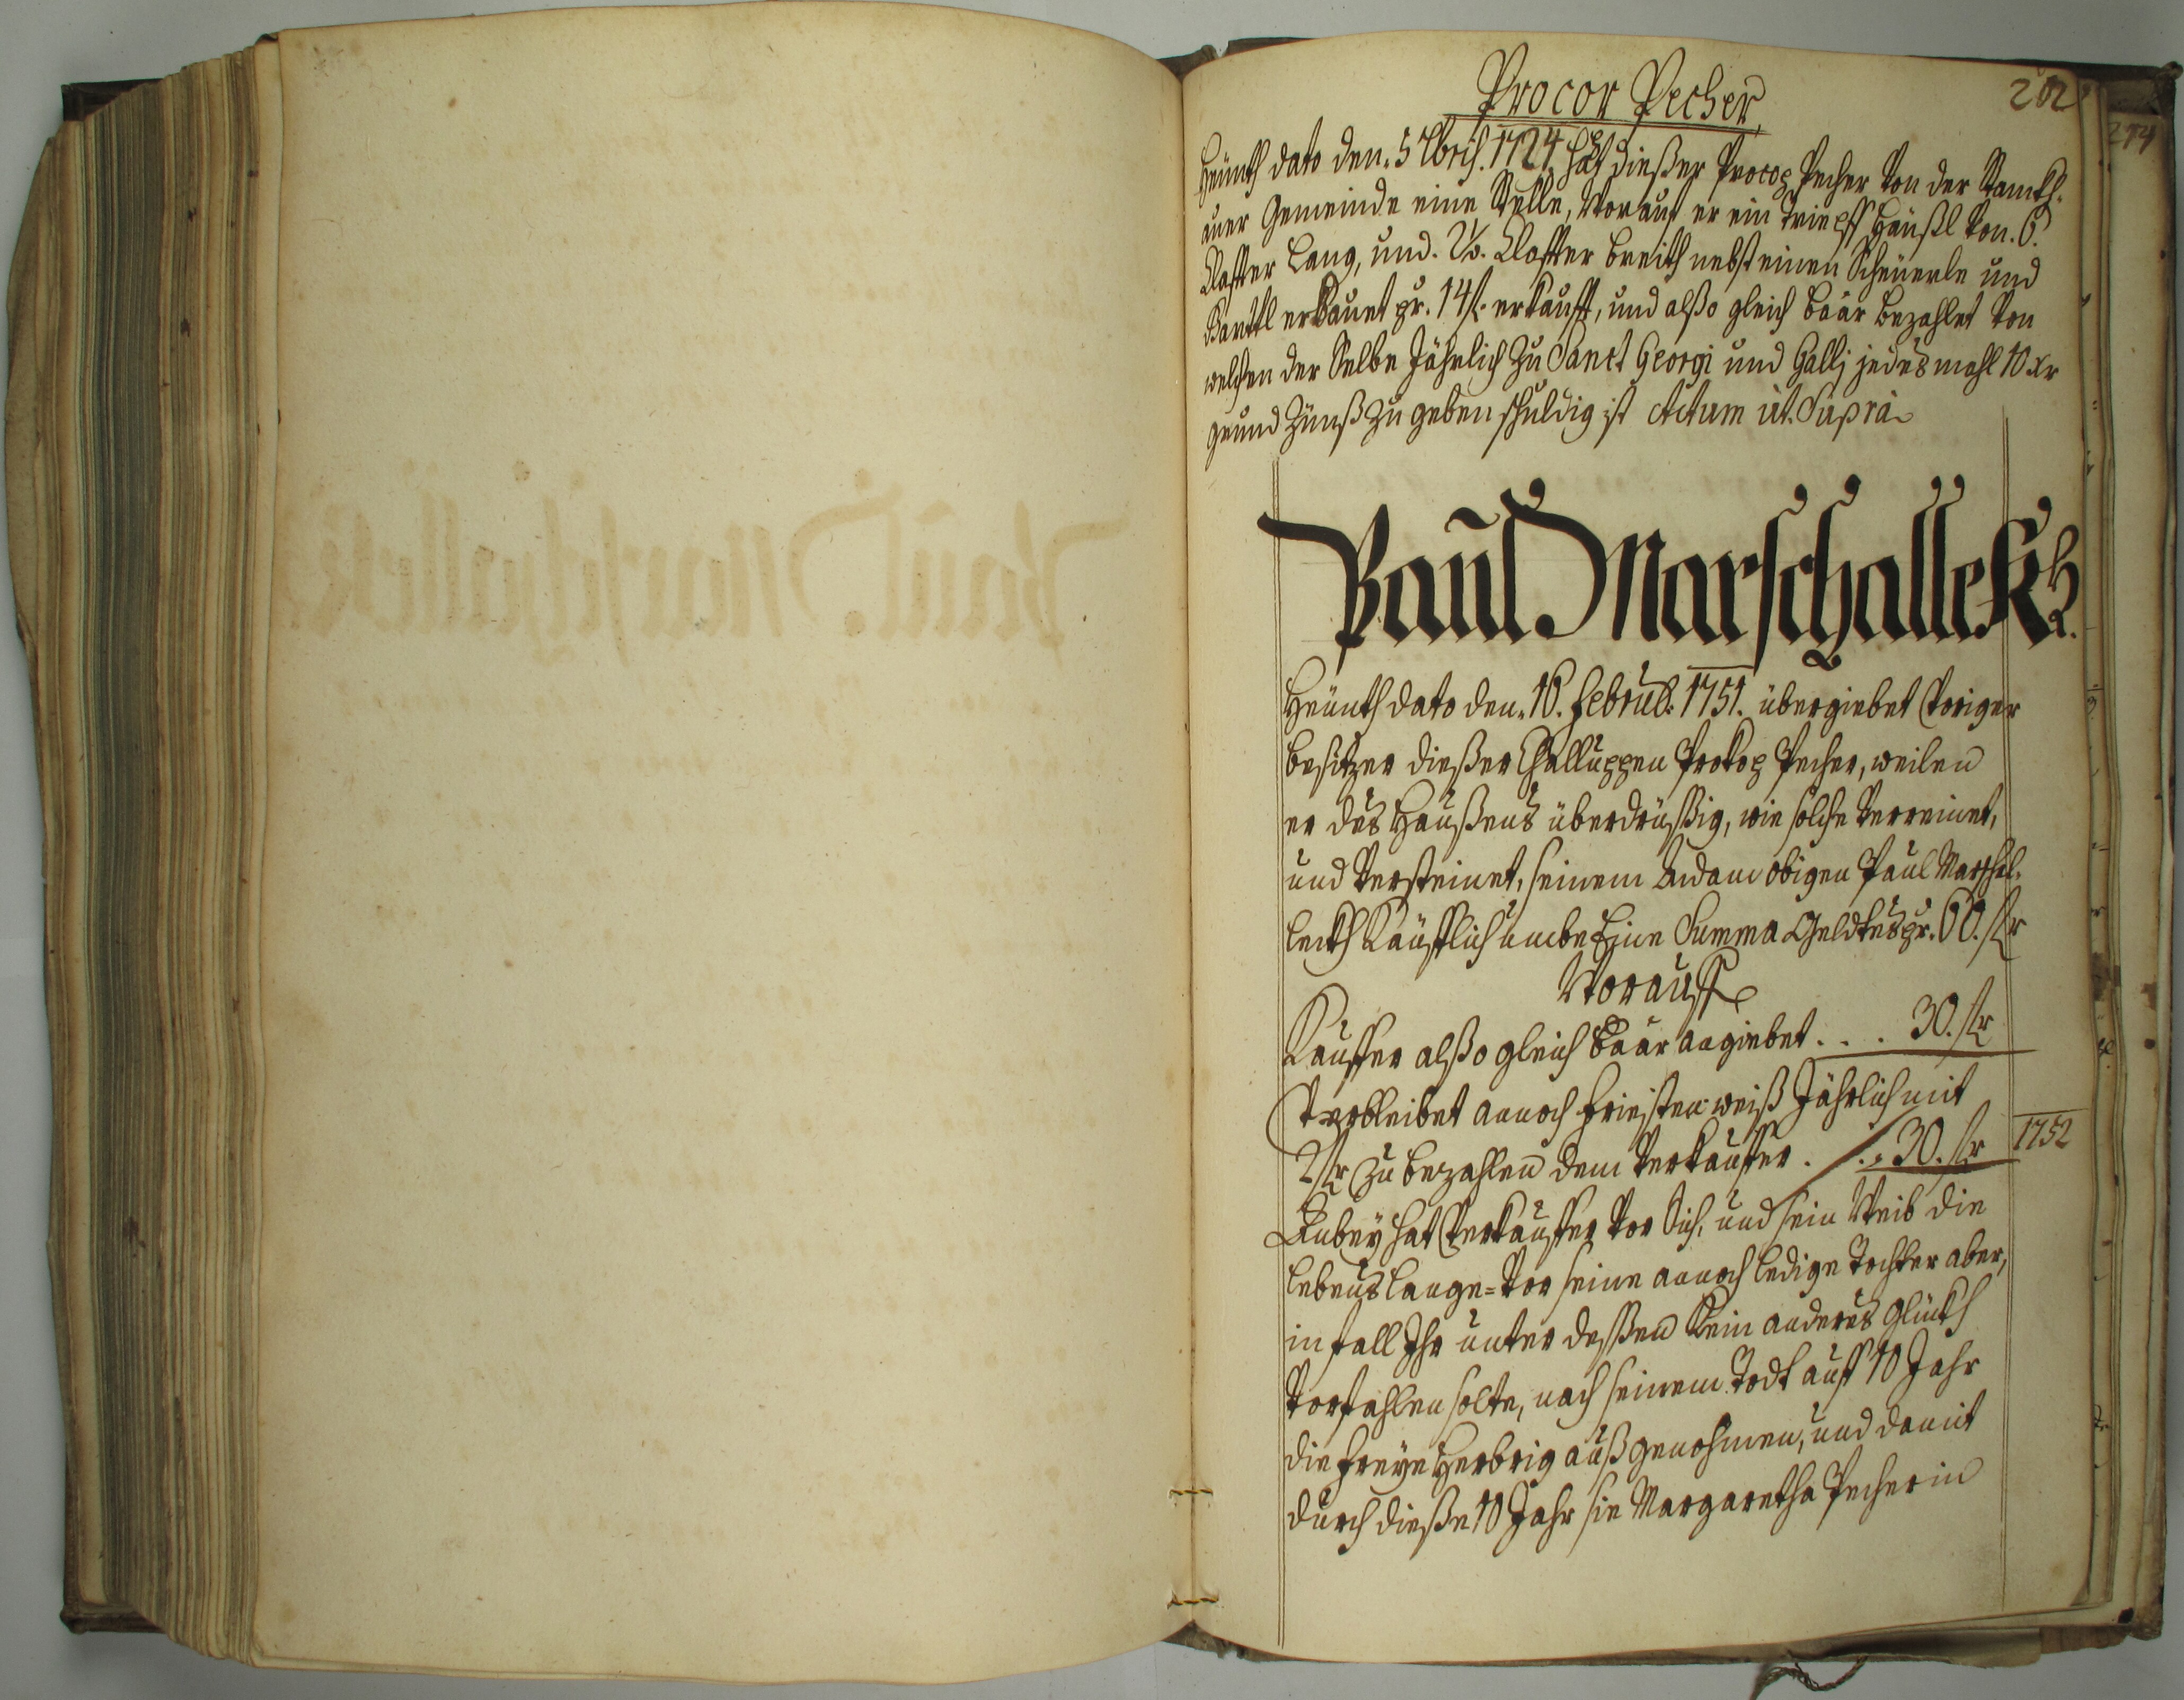 Procop Pecher
202
274
Heünth dato den. 5 7bris. 1724 hat dießer Procop Pecher von der
auer Gemeinde eine Stelle, Worauf er ein Häußl von. 6.
Claffter Lang, und. 2½. Claffter breith nebst einen Scheuerle und
Gartl erbauet pr. 14 fl. erkaufft, und alßo gleich baar bezahlet von
welchen der Selbe Jährlich zu Sanct Georgi und Gallj jedes mahl 10 xr
grund Zünß zu geben schuldig ist Actum ut. Supra
Paul Marschallekh
Heünth dato den. 16. Februar: 1751. übergiebet Voriger
besitzer dießer Challuppen Prokop Pecher, weilen
er des Haußens überdrüßig, wie solche verreinet,
und versteinet, seinem Aydam obigen Paul Marschal-
lekh Käufflich umbe Eine Summa Geldtes pr. 60. flr
Worauff
Kauffer alßo gleich baar angiebet . . . 30. flr
Verbleibet annoch friesten weiß Jährlich mit
2 flr zu bezahlen dem Verkauffer . . . 30. flr
1752
Anbey hat Verkauffer vor Sich, und sein Weib die
lebens lange = vor seine annoch ledige Tochter aber,
in fall Ihr unter dessen Kein anderes Glückh
vorfahlen solte, nach seinem Todt auff 10 Jahr
die freye Herbrig auß genohmen, und damit
durch dieße 10 Jahr sie Margaretha Pecherin